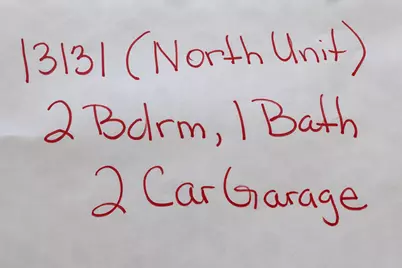 13131 (North Unit)
2 Bdrm, 1 Bath
2 Car Garage